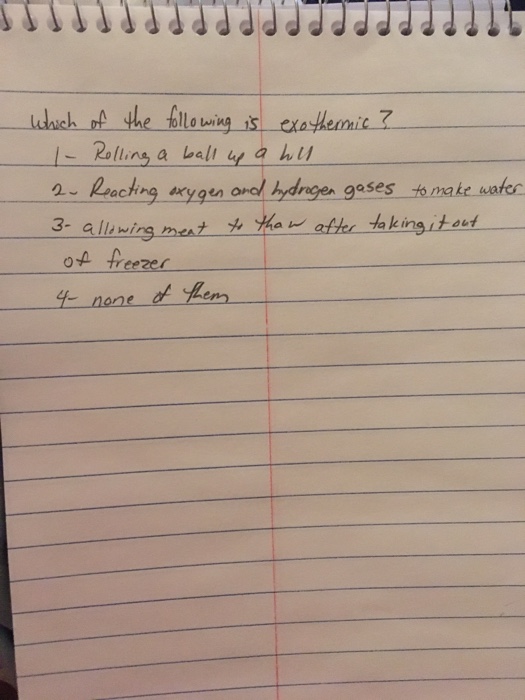 Which of the following is exothermic?
1- Rolling a ball up a hill
2- Reacting oxygen and hydrogen gases to make water
3- allowing meat to thaw after taking it out
of freezer
4- none of them